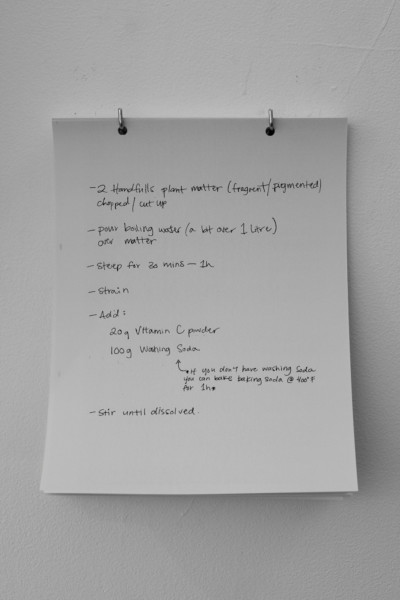 - 2 Handfulls plant matter (fragrent/pigmented)
chopped / cut up
- pour boiling water (a bit over 1 Litre)
over matter
- Steep for 30 mins - 1h
- Strain
- Add:
20g Vitamin C powder
100g Washing Soda
* If you don't have washing soda
you can bake baking soda @ 400°F
for 1h *
- Stir until dissolved.